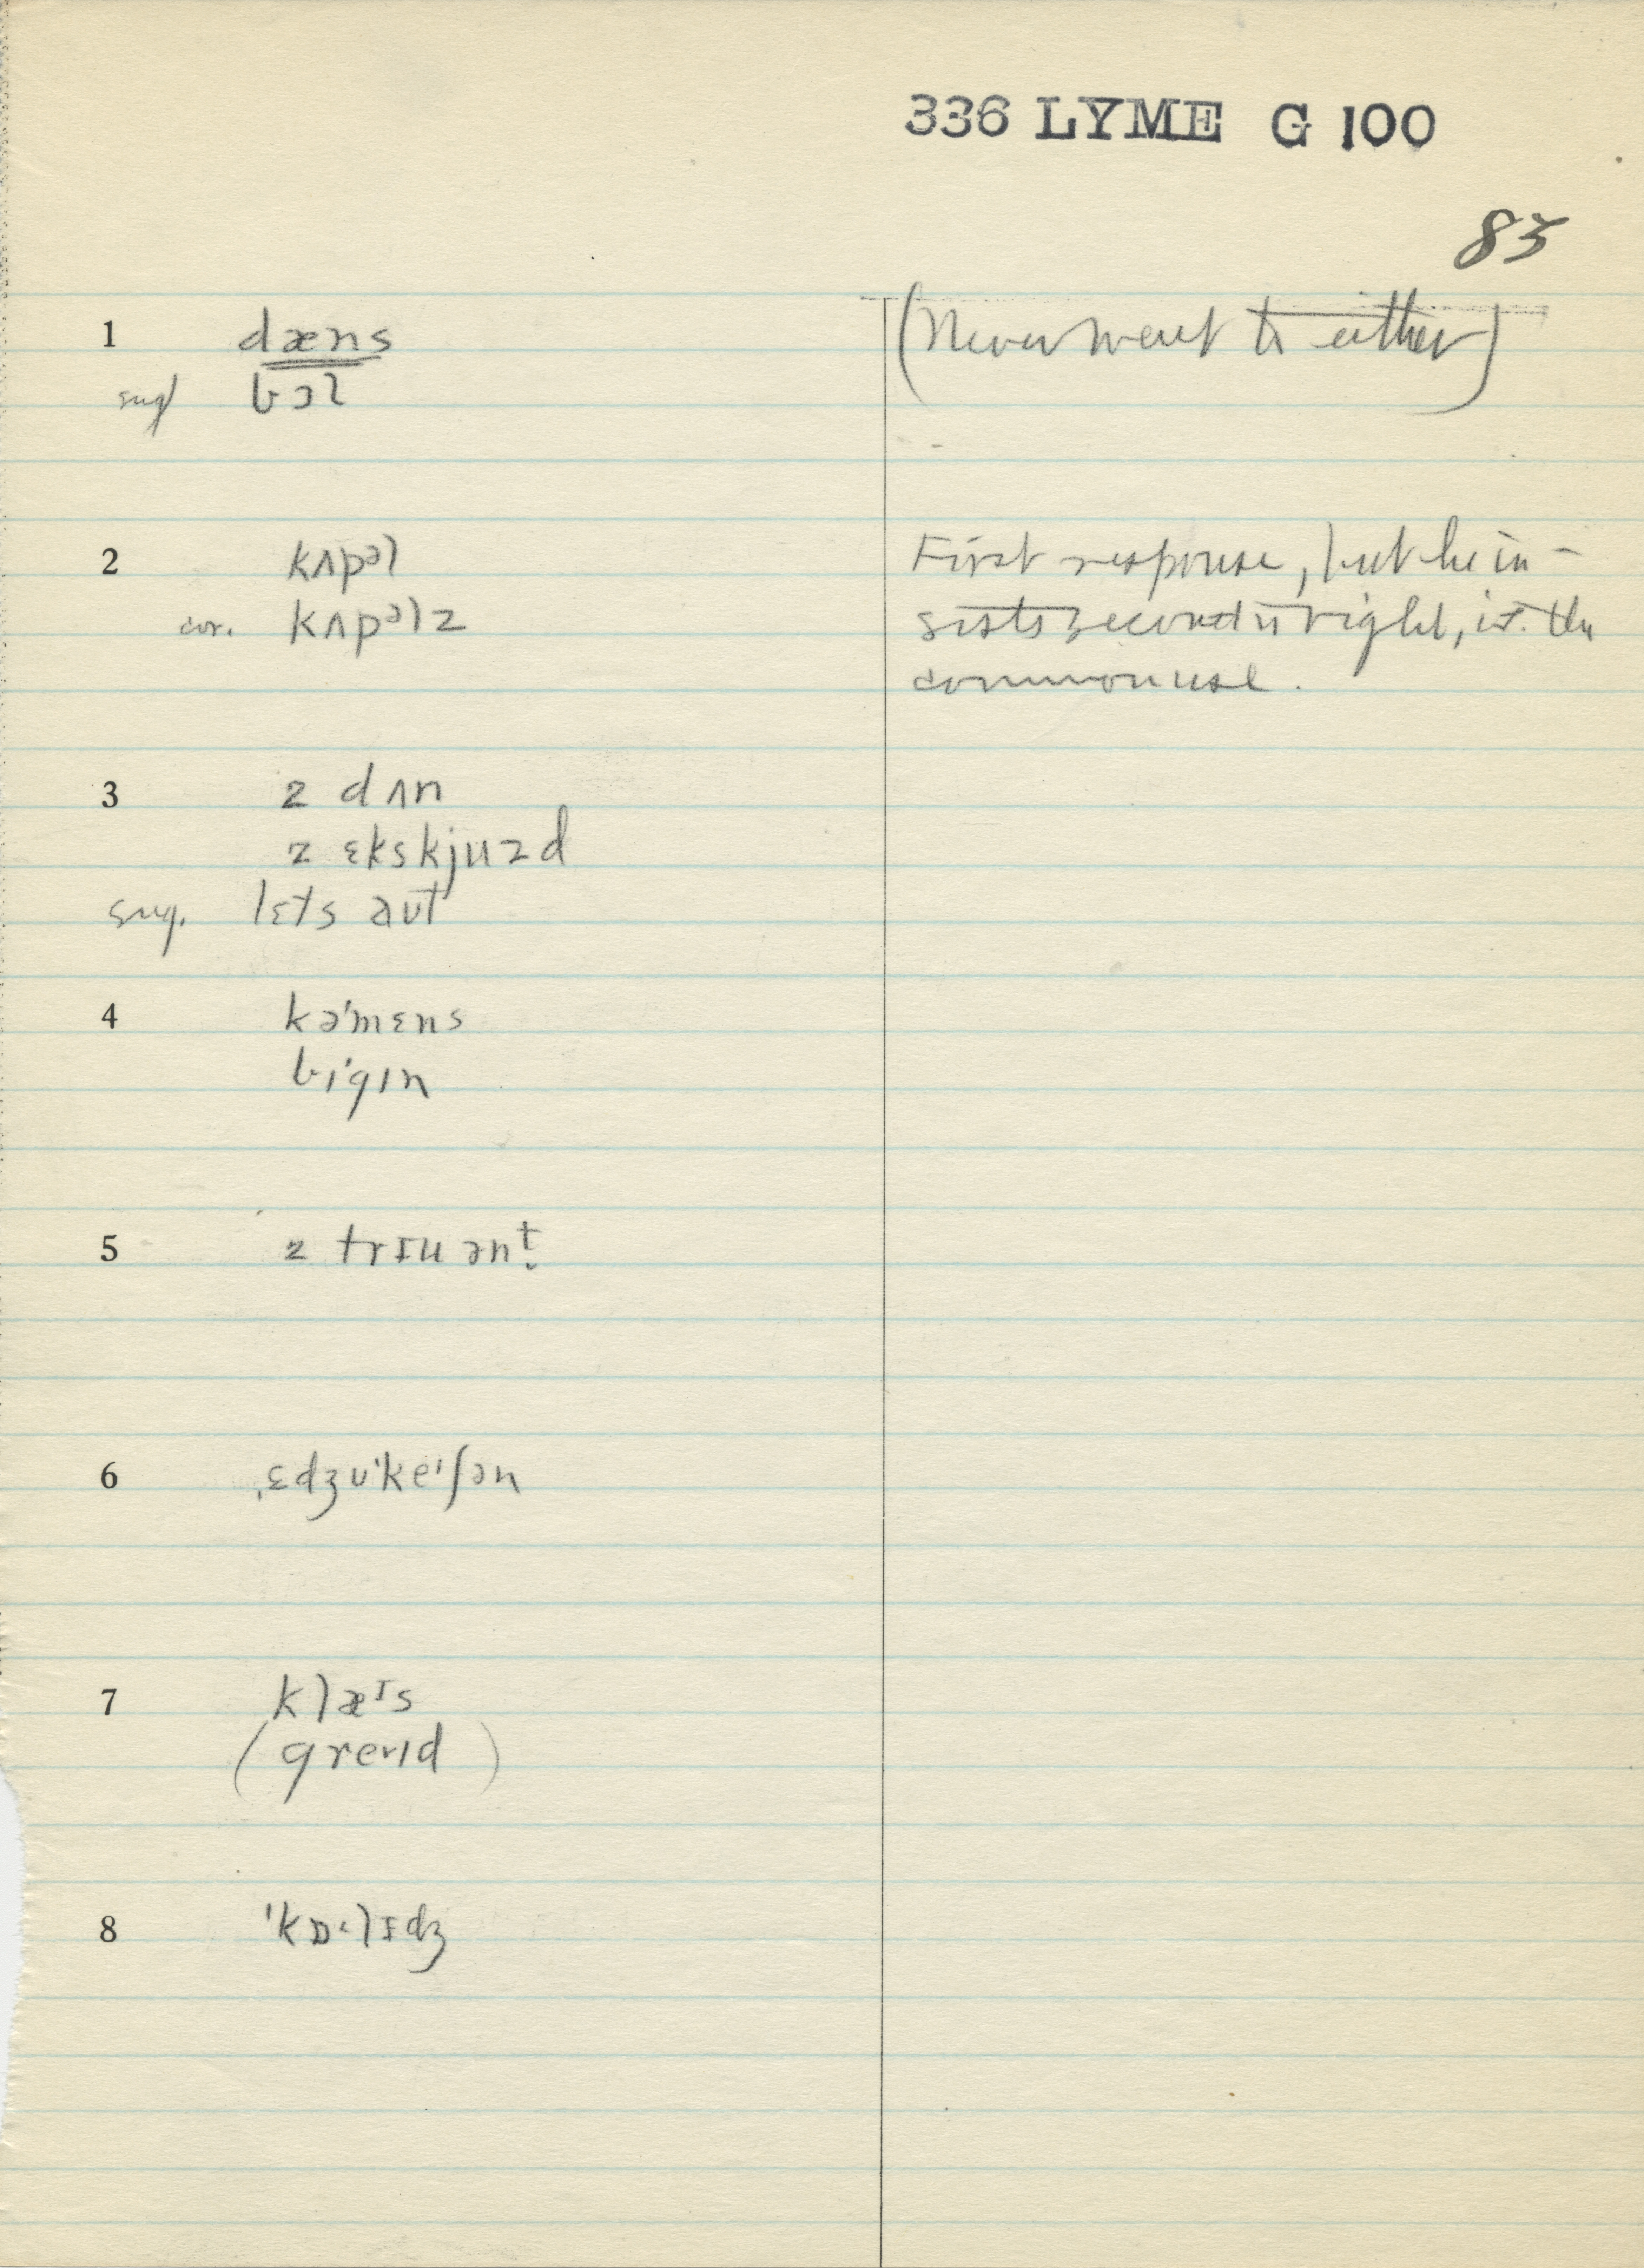 336 LYME G 100
83
1 dæns (Never went to either)
sug bɔl
2 kʌpᵊl First response, but he in-
cor. kʌpᵊlz sists second is right, is the
common use.
3 z dʌn
z ɛkskjuzd
sug. lɛts aʊt
4 kə'mɛns
bi'gɪn
5 z trɪuənt
6 ˌɛdʒʊ'keˈʃən
7 klæᶦs
(greɪd)
8 'kɒ·lɪdʒ